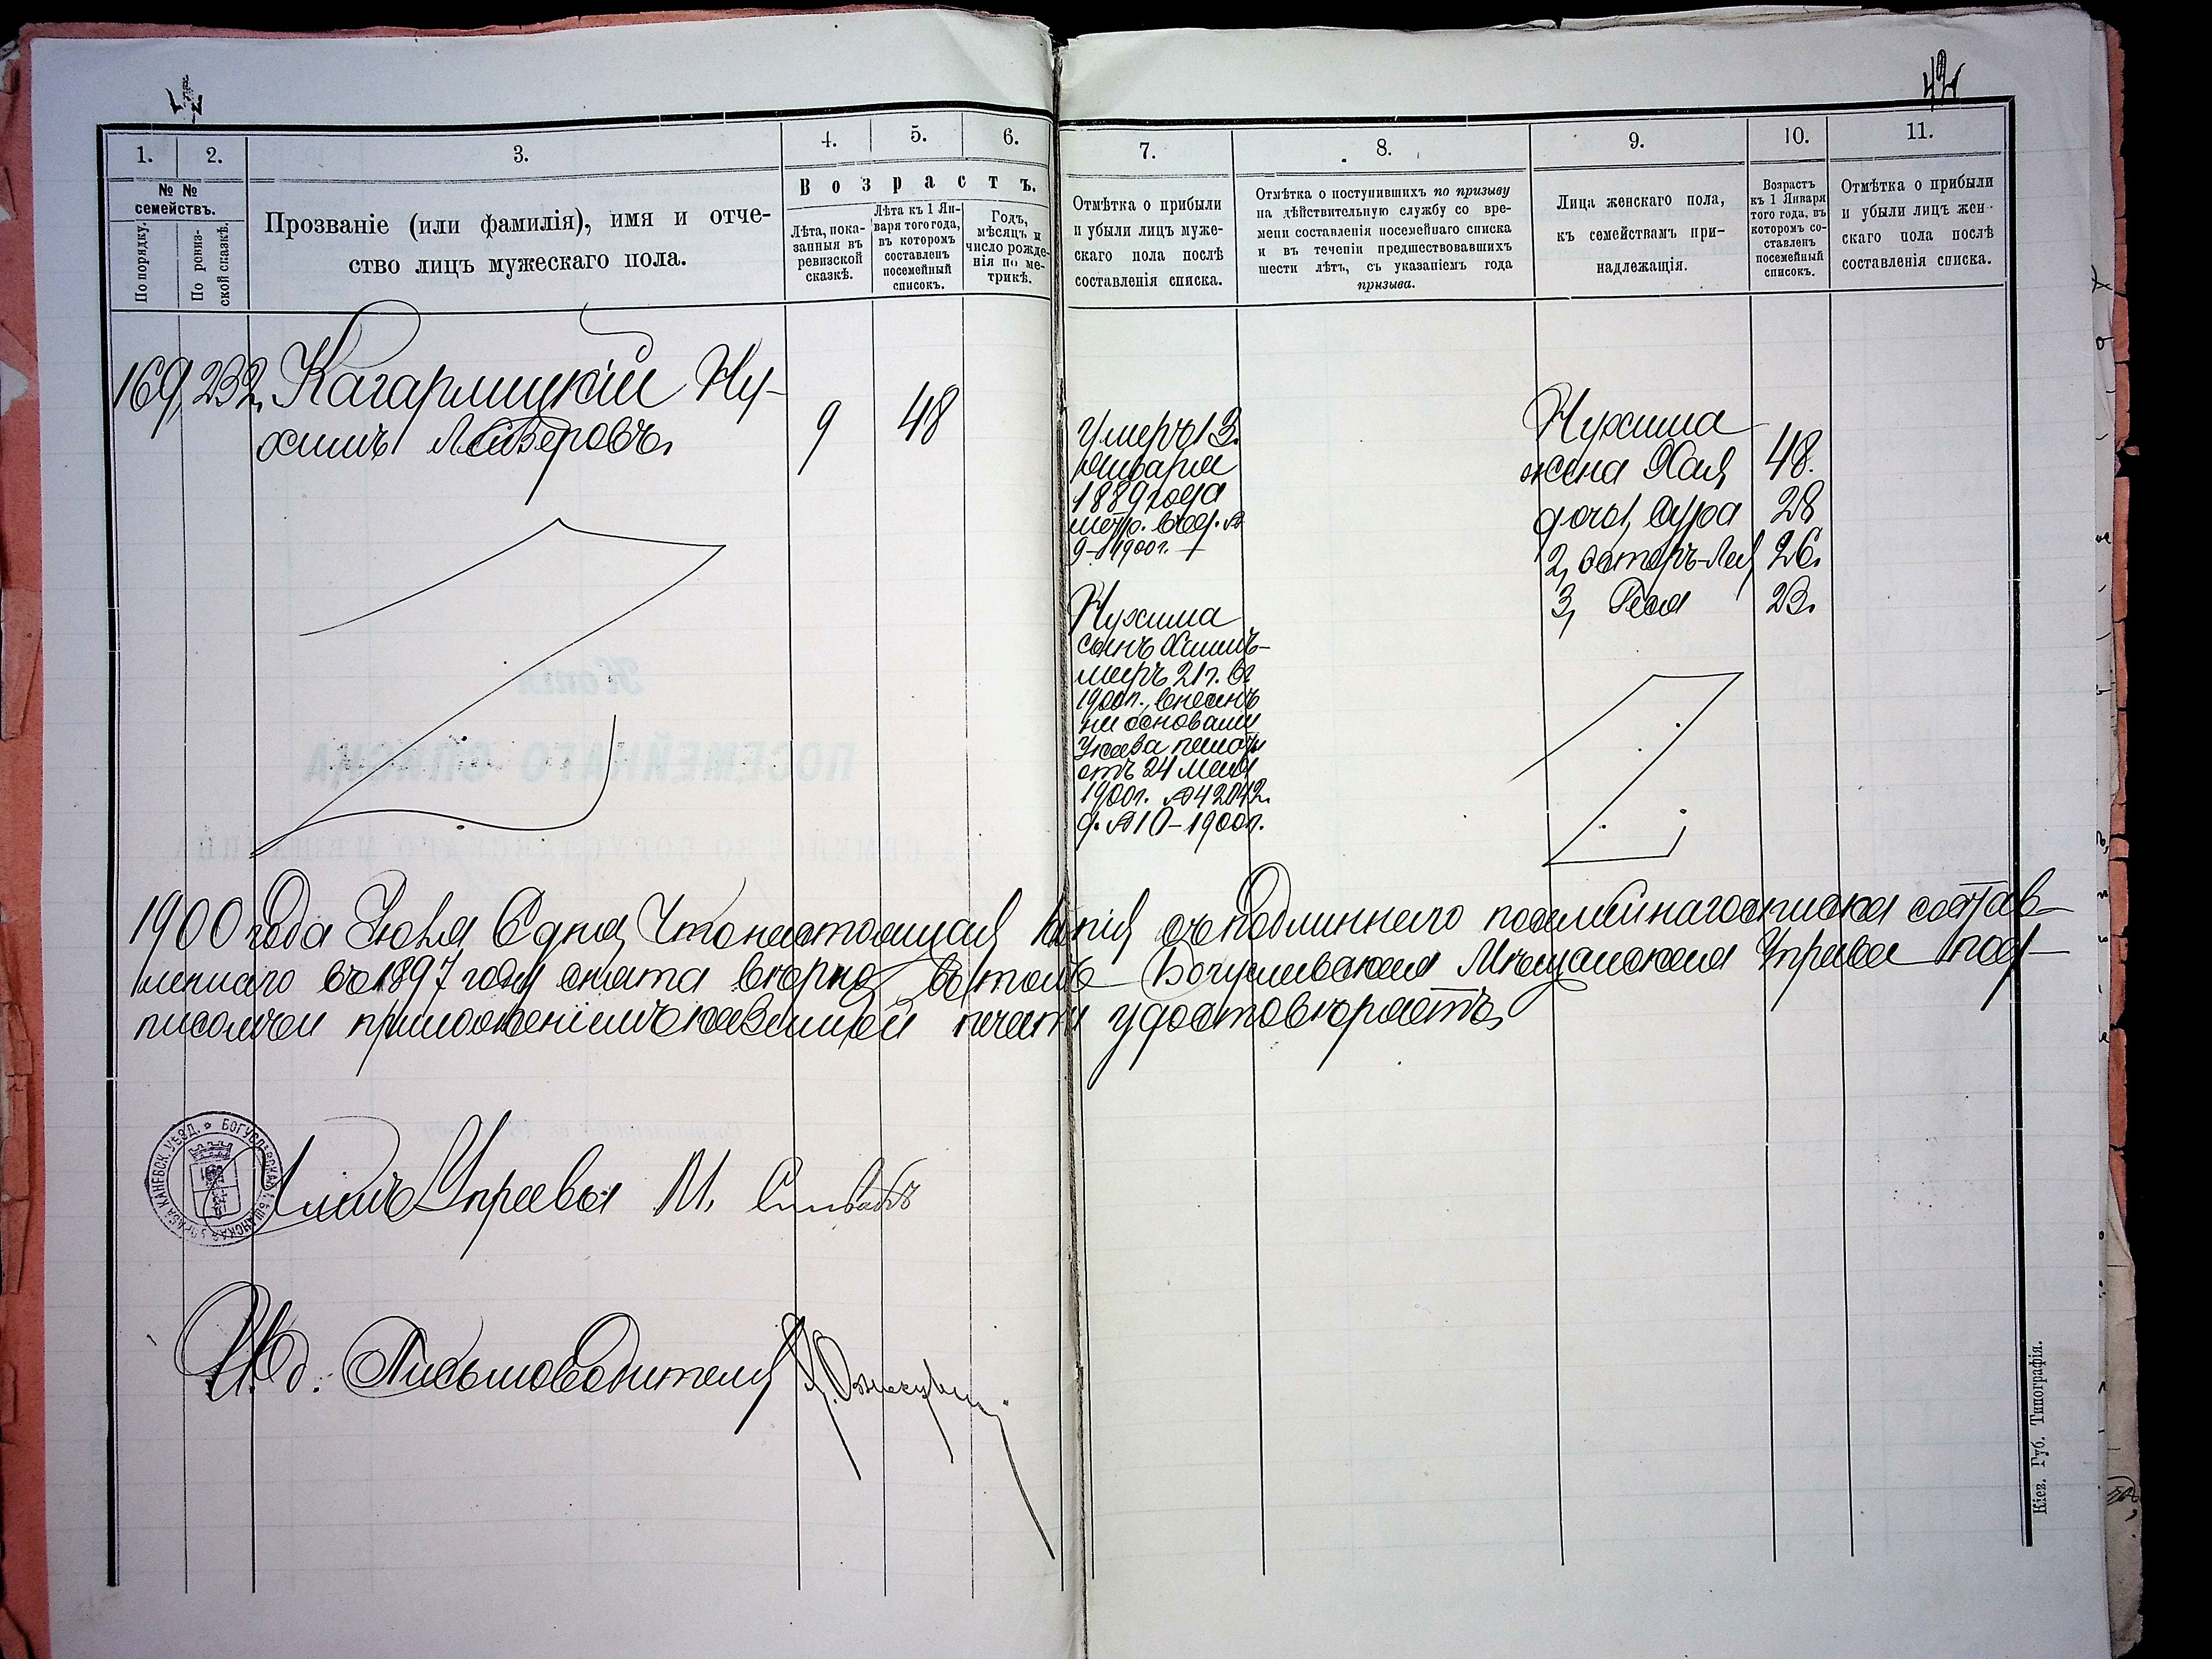 42
1.
2.
3.
4.
5.
6.
7.
8.
9.
10.
11.
№ №
семействъ.
По порядку.
По ревиз-
ской сказкѣ.
Прозваніе (или фамилія), имя и отче-
ство лицъ мужескаго пола.
Возрастъ.
Лѣта, пока-
занныя въ
ревизской
сказкѣ.
Лѣта къ 1 Ян-
варя того года,
въ которомъ
составленъ
посемейный
списокъ.
Годъ,
мѣсяцъ и
число рожде-
нія по ме-
трикѣ.
Отмѣтка о прибыли
и убыли лицъ муже-
скаго пола послѣ
составленія списка.
Отмѣтка о поступившихъ по призыву
на дѣйствительную службу со вре-
мени составленія посемейнаго списка
и въ теченіи предшествовавшихъ
шести лѣтъ, съ указаніемъ года
призыва.
Лица женскаго пола,
къ семействамъ при-
надлежащія.
Возрастъ
къ 1 Января
того года, въ
которомъ со-
ставленъ
посемейный
списокъ.
Отмѣтка о прибыли
и убыли лицъ жен-
скаго пола послѣ
составленія списка.
169, 232, Кагарлицкій Ну-
химъ Лейзеровъ,
9
48
Умеръ 13.
Января
1889 года
метр. свѣд. №
9-1900 г.
Нухима
сынъ Хаимъ-
меръ 21 г. въ
1900 г., внесенъ
на основаніи
Указа палаты
отъ 24 Мая
1900 г. № 42042.
д. № 10-1900 г.
Нухима
жена Хая, 48.
дочь 1, Сура 28
2, Эстеръ-Лея 26.
3, Рейзя 23.
1900 года Іюля 6 дня, Что настоящая копія съ подлиннаго посемейнаго списка состав-
леннаго въ 1897 году снята вѣрно, въ томъ Богуславская Мѣщанская Управа под-
писомъ и приложеніемъ казенной печати удостовѣряетъ,
БОГУСЛАВСКАЯ МѢЩАНСКАЯ УПРАВА КАНЕВСК. УѢЗД.
Членъ Управы М.
И. д. Письмоводителя
Кіев. Губ. Типографія.